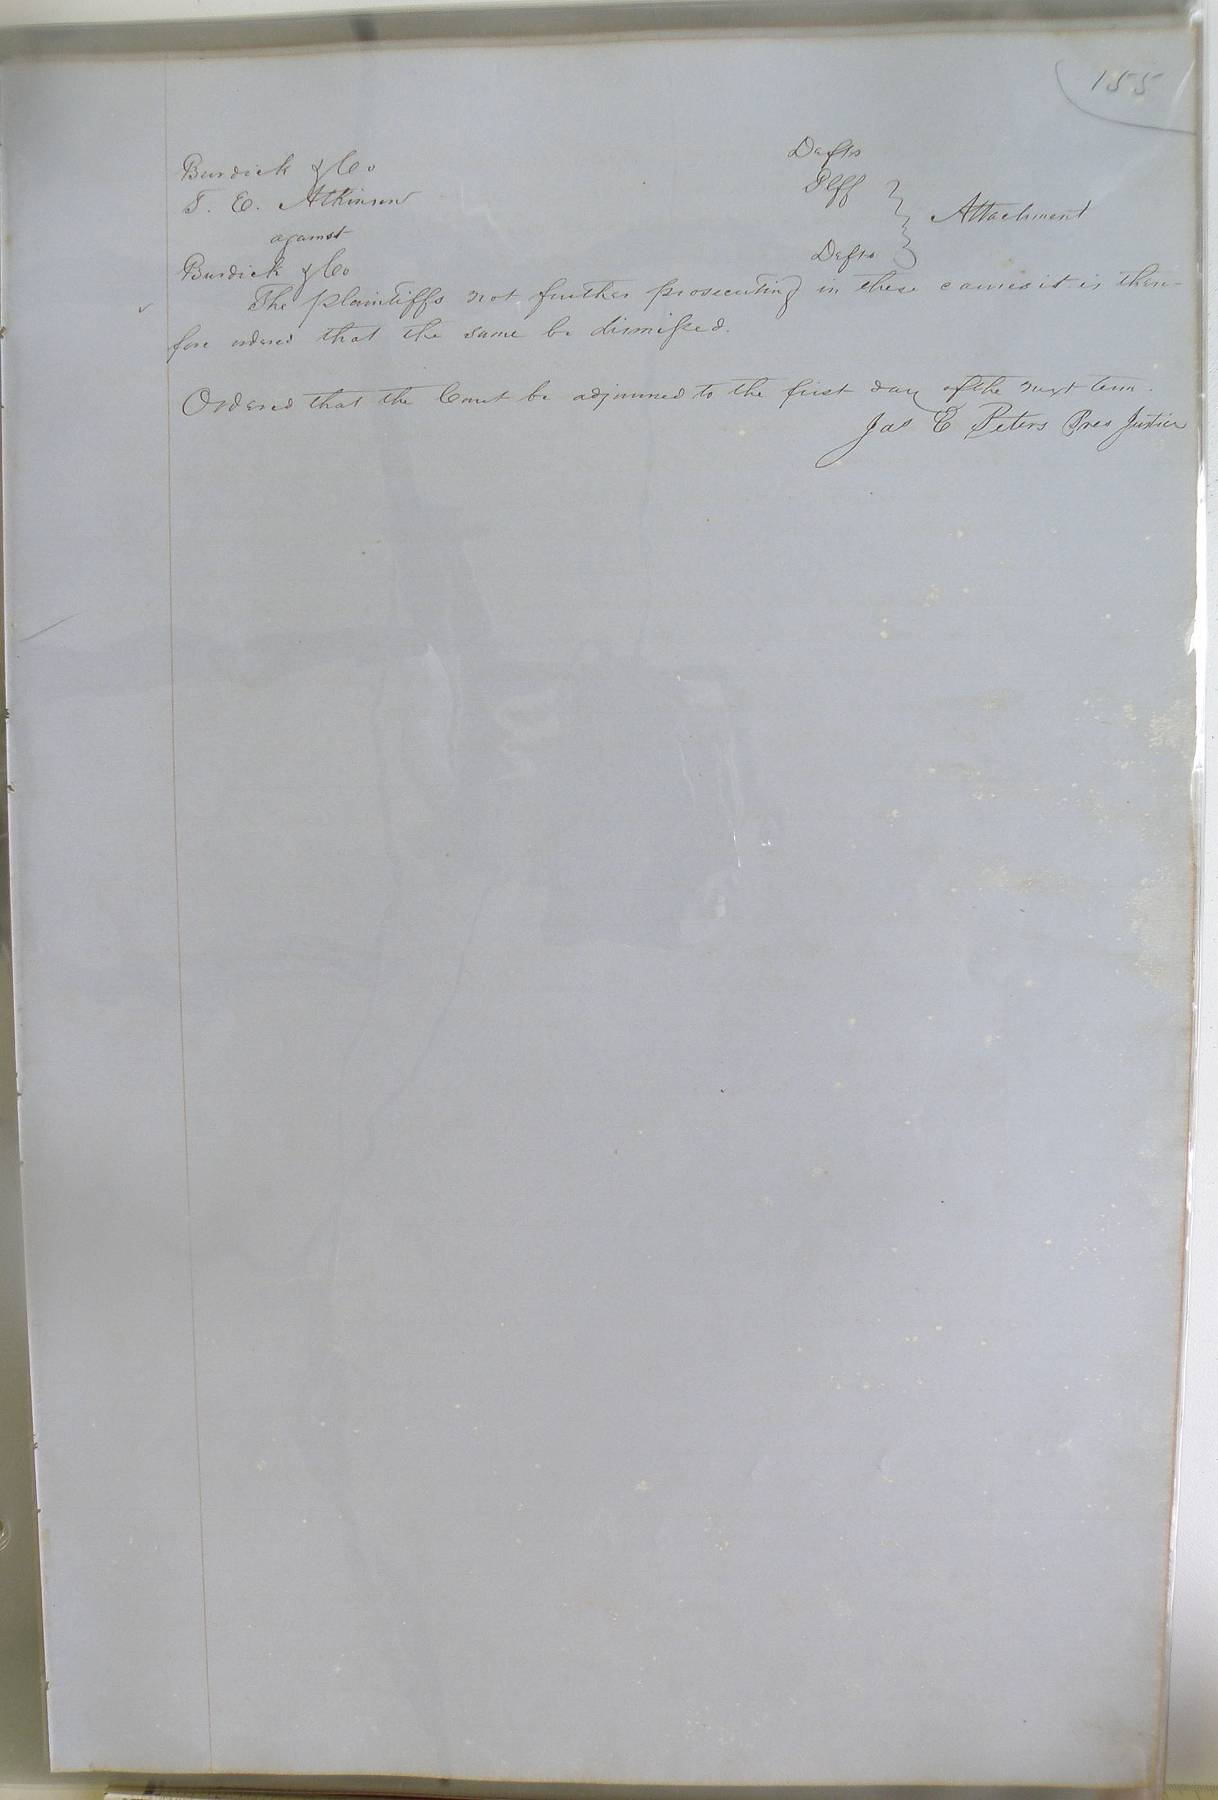 155
Burdick & Co Defts
T. E. Atkinson Plff
against Attachment
Burdick & Co Defts
The plaintiffs not further prosecuting in these causes it is there-
fore ordered that the same be dismissed.
Ordered that the Court be adjourned to the first day of the next term.
Jas E Peters Pres Justice